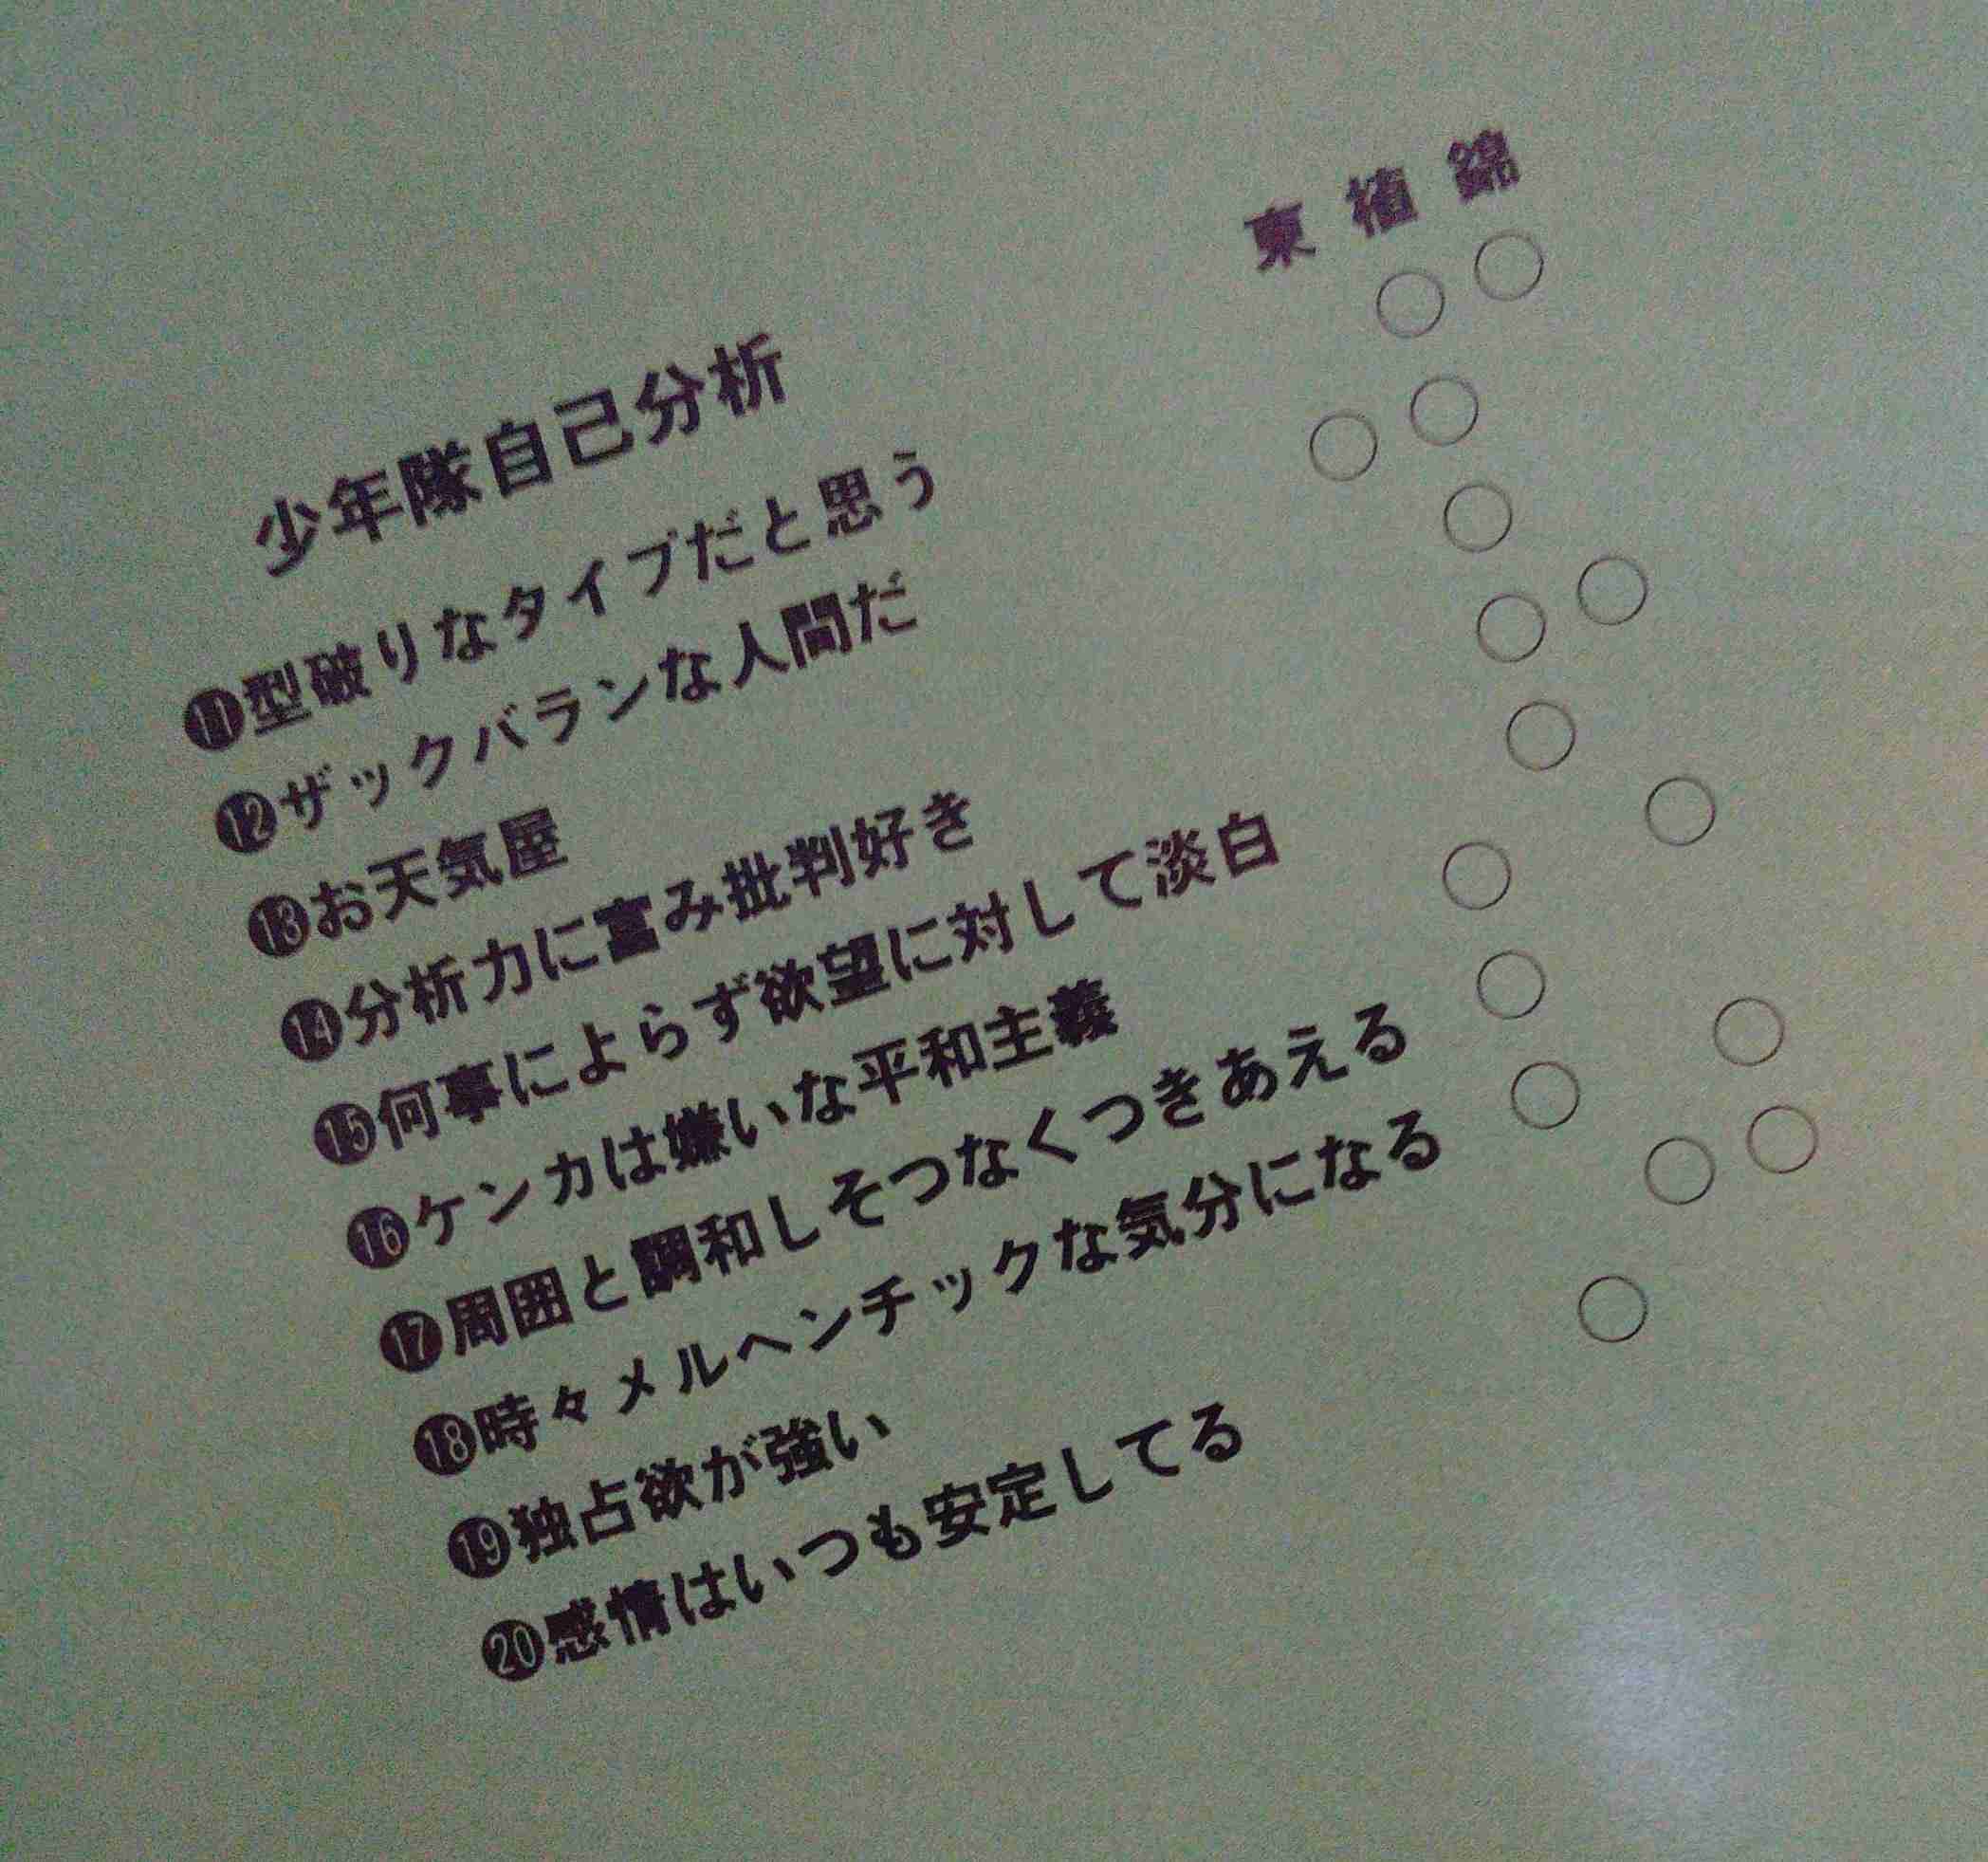 少年隊自己分析
東 植 錦
⓫型破りなタイプだと思う
⓬ザックバランな人間だ
⓭お天気屋
⓮分析力に富み批判好き
⓯何事によらず欲望に対して淡白
⓰ケンカは嫌いな平和主義
⓱周囲と調和しそつなくつきあえる
⓲時々メルヘンチックな気分になる
⓳独占欲が強い
⓴感情はいつも安定してる